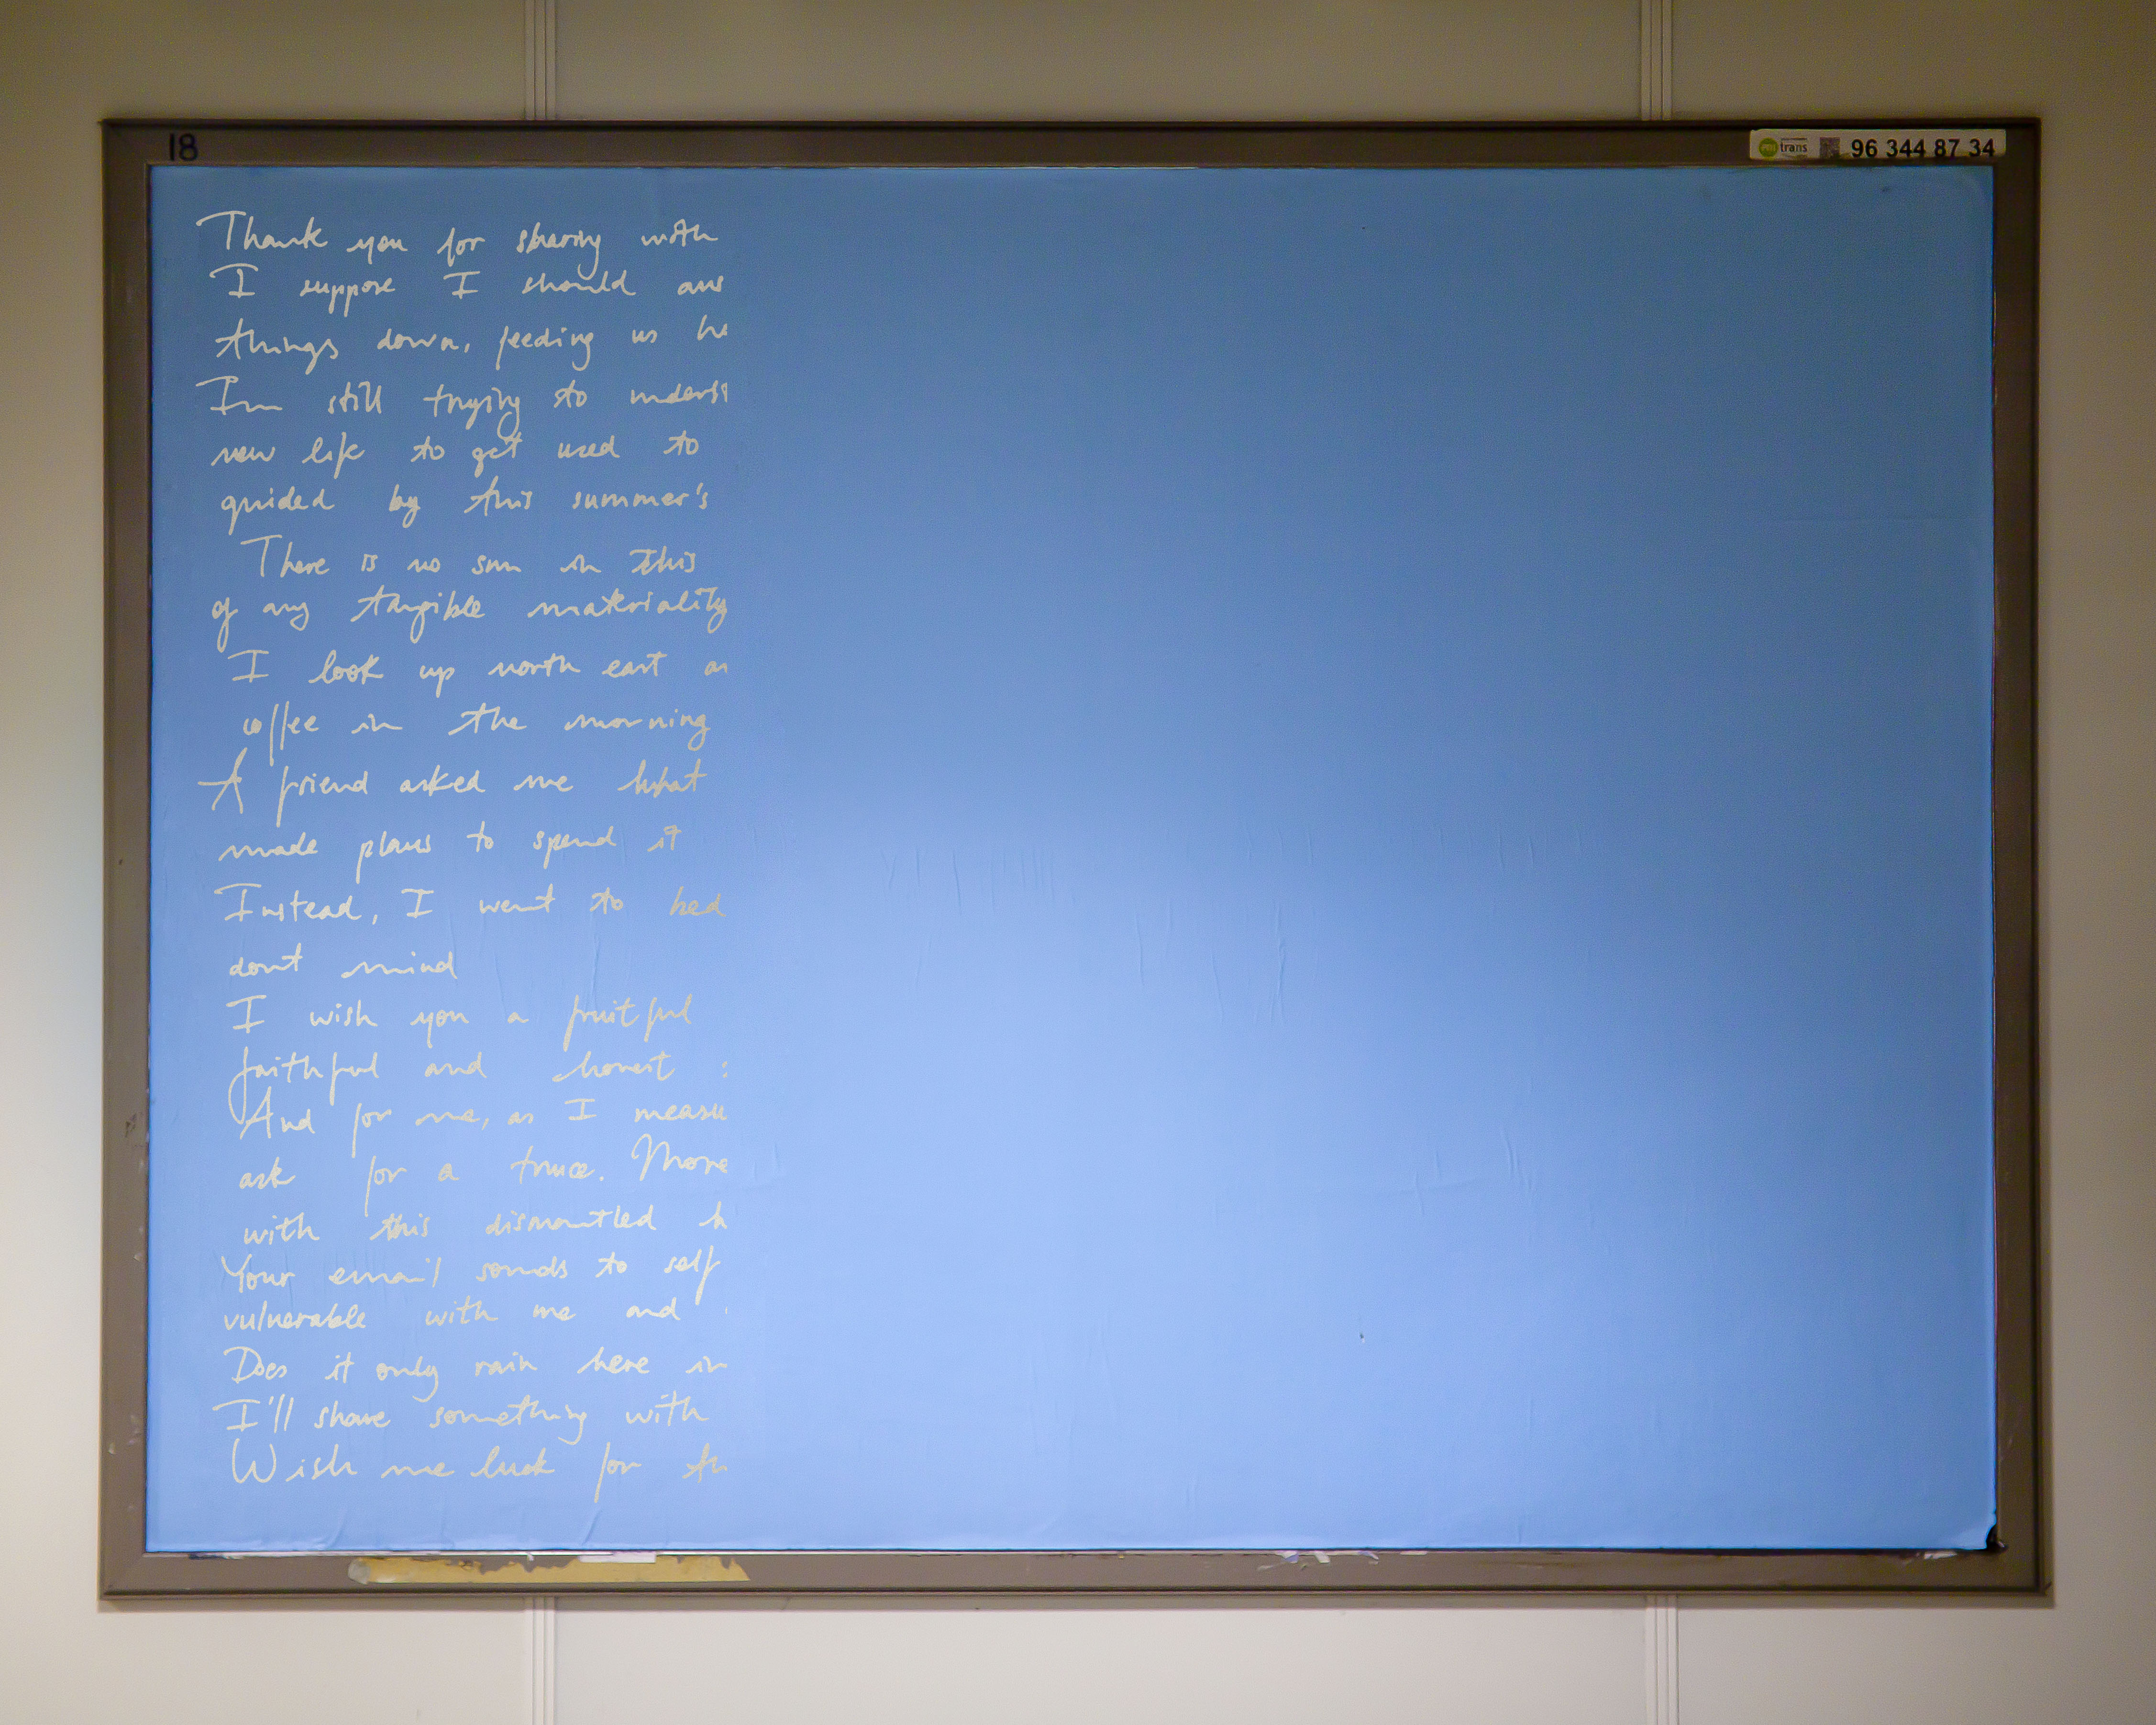 18
trans 96 344 87 34
Thank you for sharing with
I suppose I should ans
things down, feeding us he
Im still trying to underst
new life to get used to
guided by this summer's
There is no sun in this
of any tangible materiality
I look up north east an
coffee in the morning
A friend asked me what
made plans to spend it
Instead, I went to bed
dont mind
I wish you a fruitful
faithful and honest :
And for me, as I measu
ask for a truce. More
with this dismantled h
Your email sounds to self
vulnerable with me and
Does it only rain here in
I'll share something with
Wish me luck for th